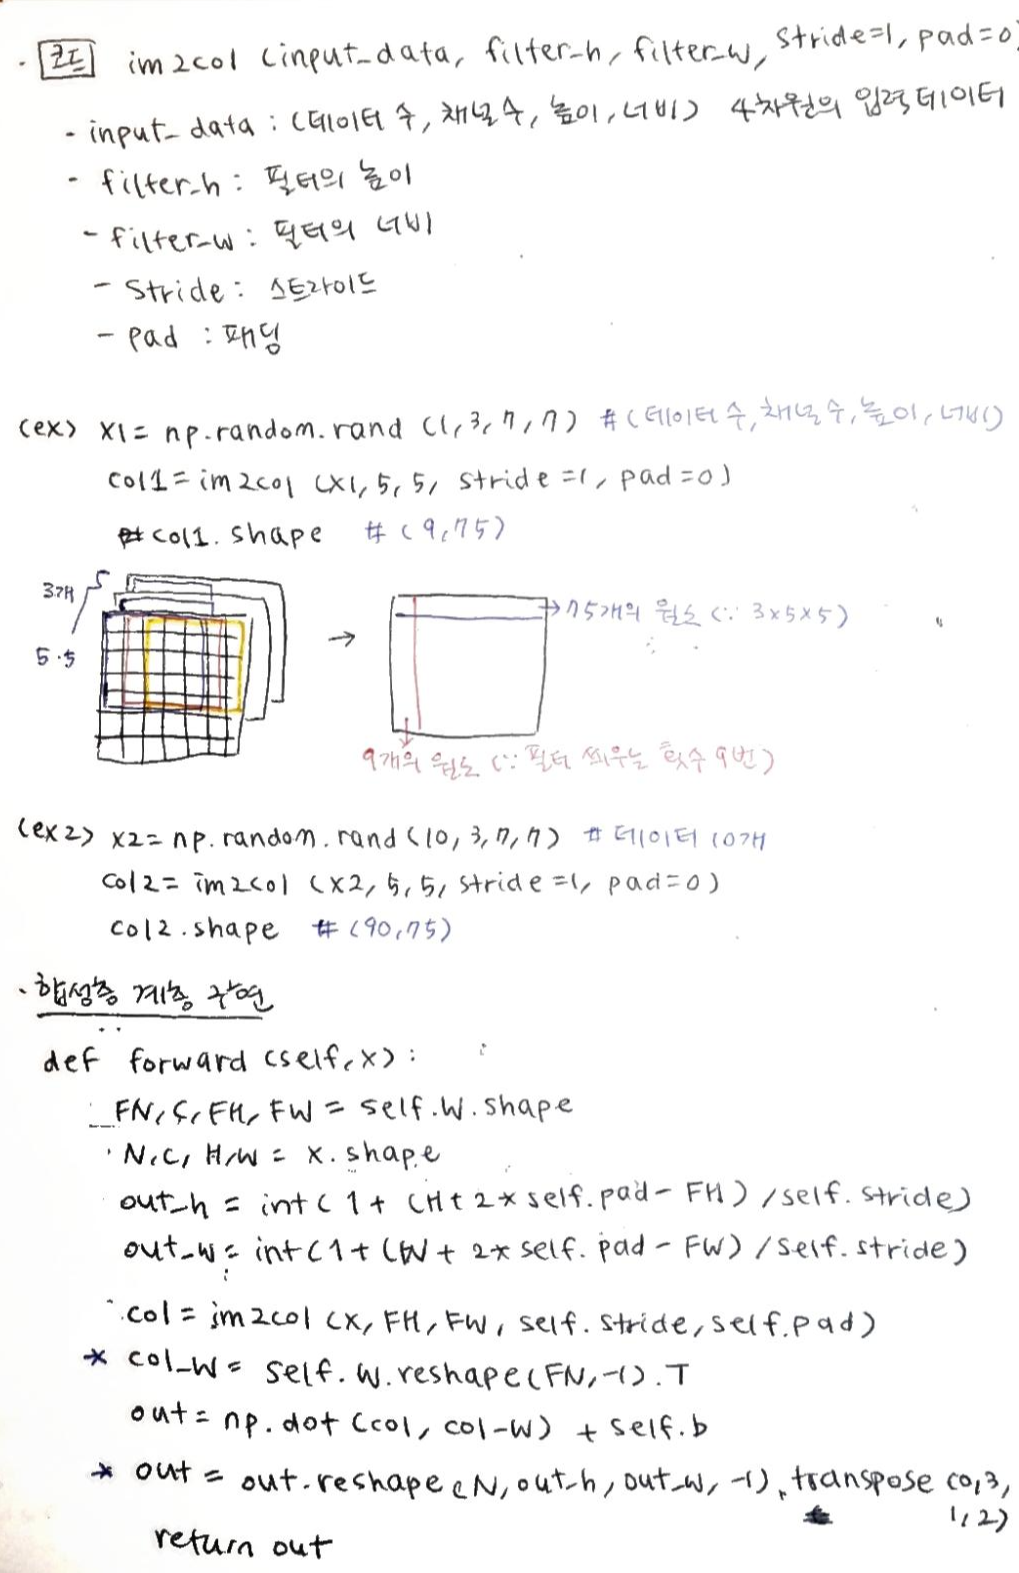 · 코드 im2col (input_data, filter_h, filter_w, stride=1, pad=0)
- input_data : (데이터 수, 채널 수, 높이, 너비) 4차원의 입력데이터
- filter_h : 필터의 높이
- filter_w : 필터의 너비
- Stride : 스트라이드
- pad : 패딩
(ex) x1 = np.random.rand (1,3,7,7) # (데이터 수, 채널 수, 높이, 너비)
col1 = im2col (x1, 5, 5, stride=1, pad=0)
col1.shape # (9,75)
3개
5·5
→
→ 75개의 원소 (∵ 3x5x5)
9개의 원소 (∵ 필터 씌우는 횟수 9번)
(ex2) x2 = np.random.rand (10, 3, 7, 7) # 데이터 10개
col2 = im2col (x2, 5, 5, stride=1, pad=0)
col2.shape # (90,75)
· 합성층 계층 구현
def forward (self, x) :
FN, C, FH, FW = self.W.shape
N, C, H, W = x.shape
out_h = int( 1 + (H + 2*self.pad - FH) / self.stride)
out_w = int(1 + (W + 2* self.pad - FW) / self.stride)
col = im2col (x, FH, FW, self.stride, self.pad)
* col_W = self.W.reshape(FN, -1).T
out = np.dot (col, col-W) + self.b
* out = out.reshape (N, out_h, out_w, -1).transpose (0,3,
1,2)
return out